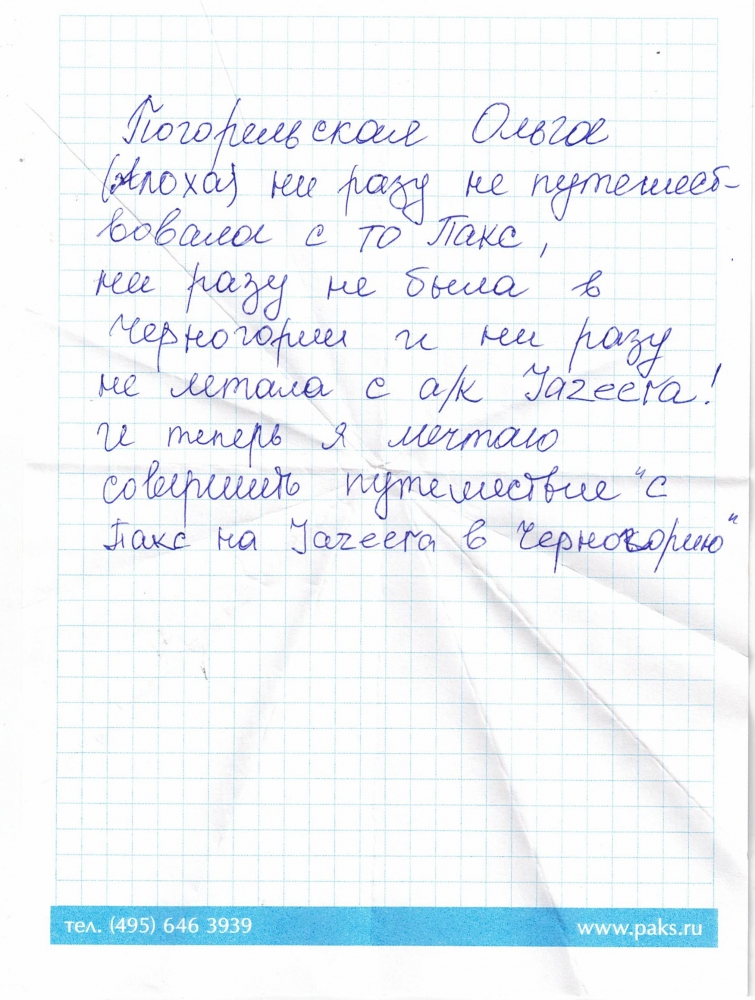 Погорельская Ольга
(Алоха) ни разу не путешест-
вовала с то Пакс,
ни разу не была в
Черногории и ни разу
не летала с а/к Jazeera!
И теперь я мечтаю
совершить путешествие "с
Пакс на Jazeera в Черногорию"
тел. (495) 646 3939
www.paks.ru